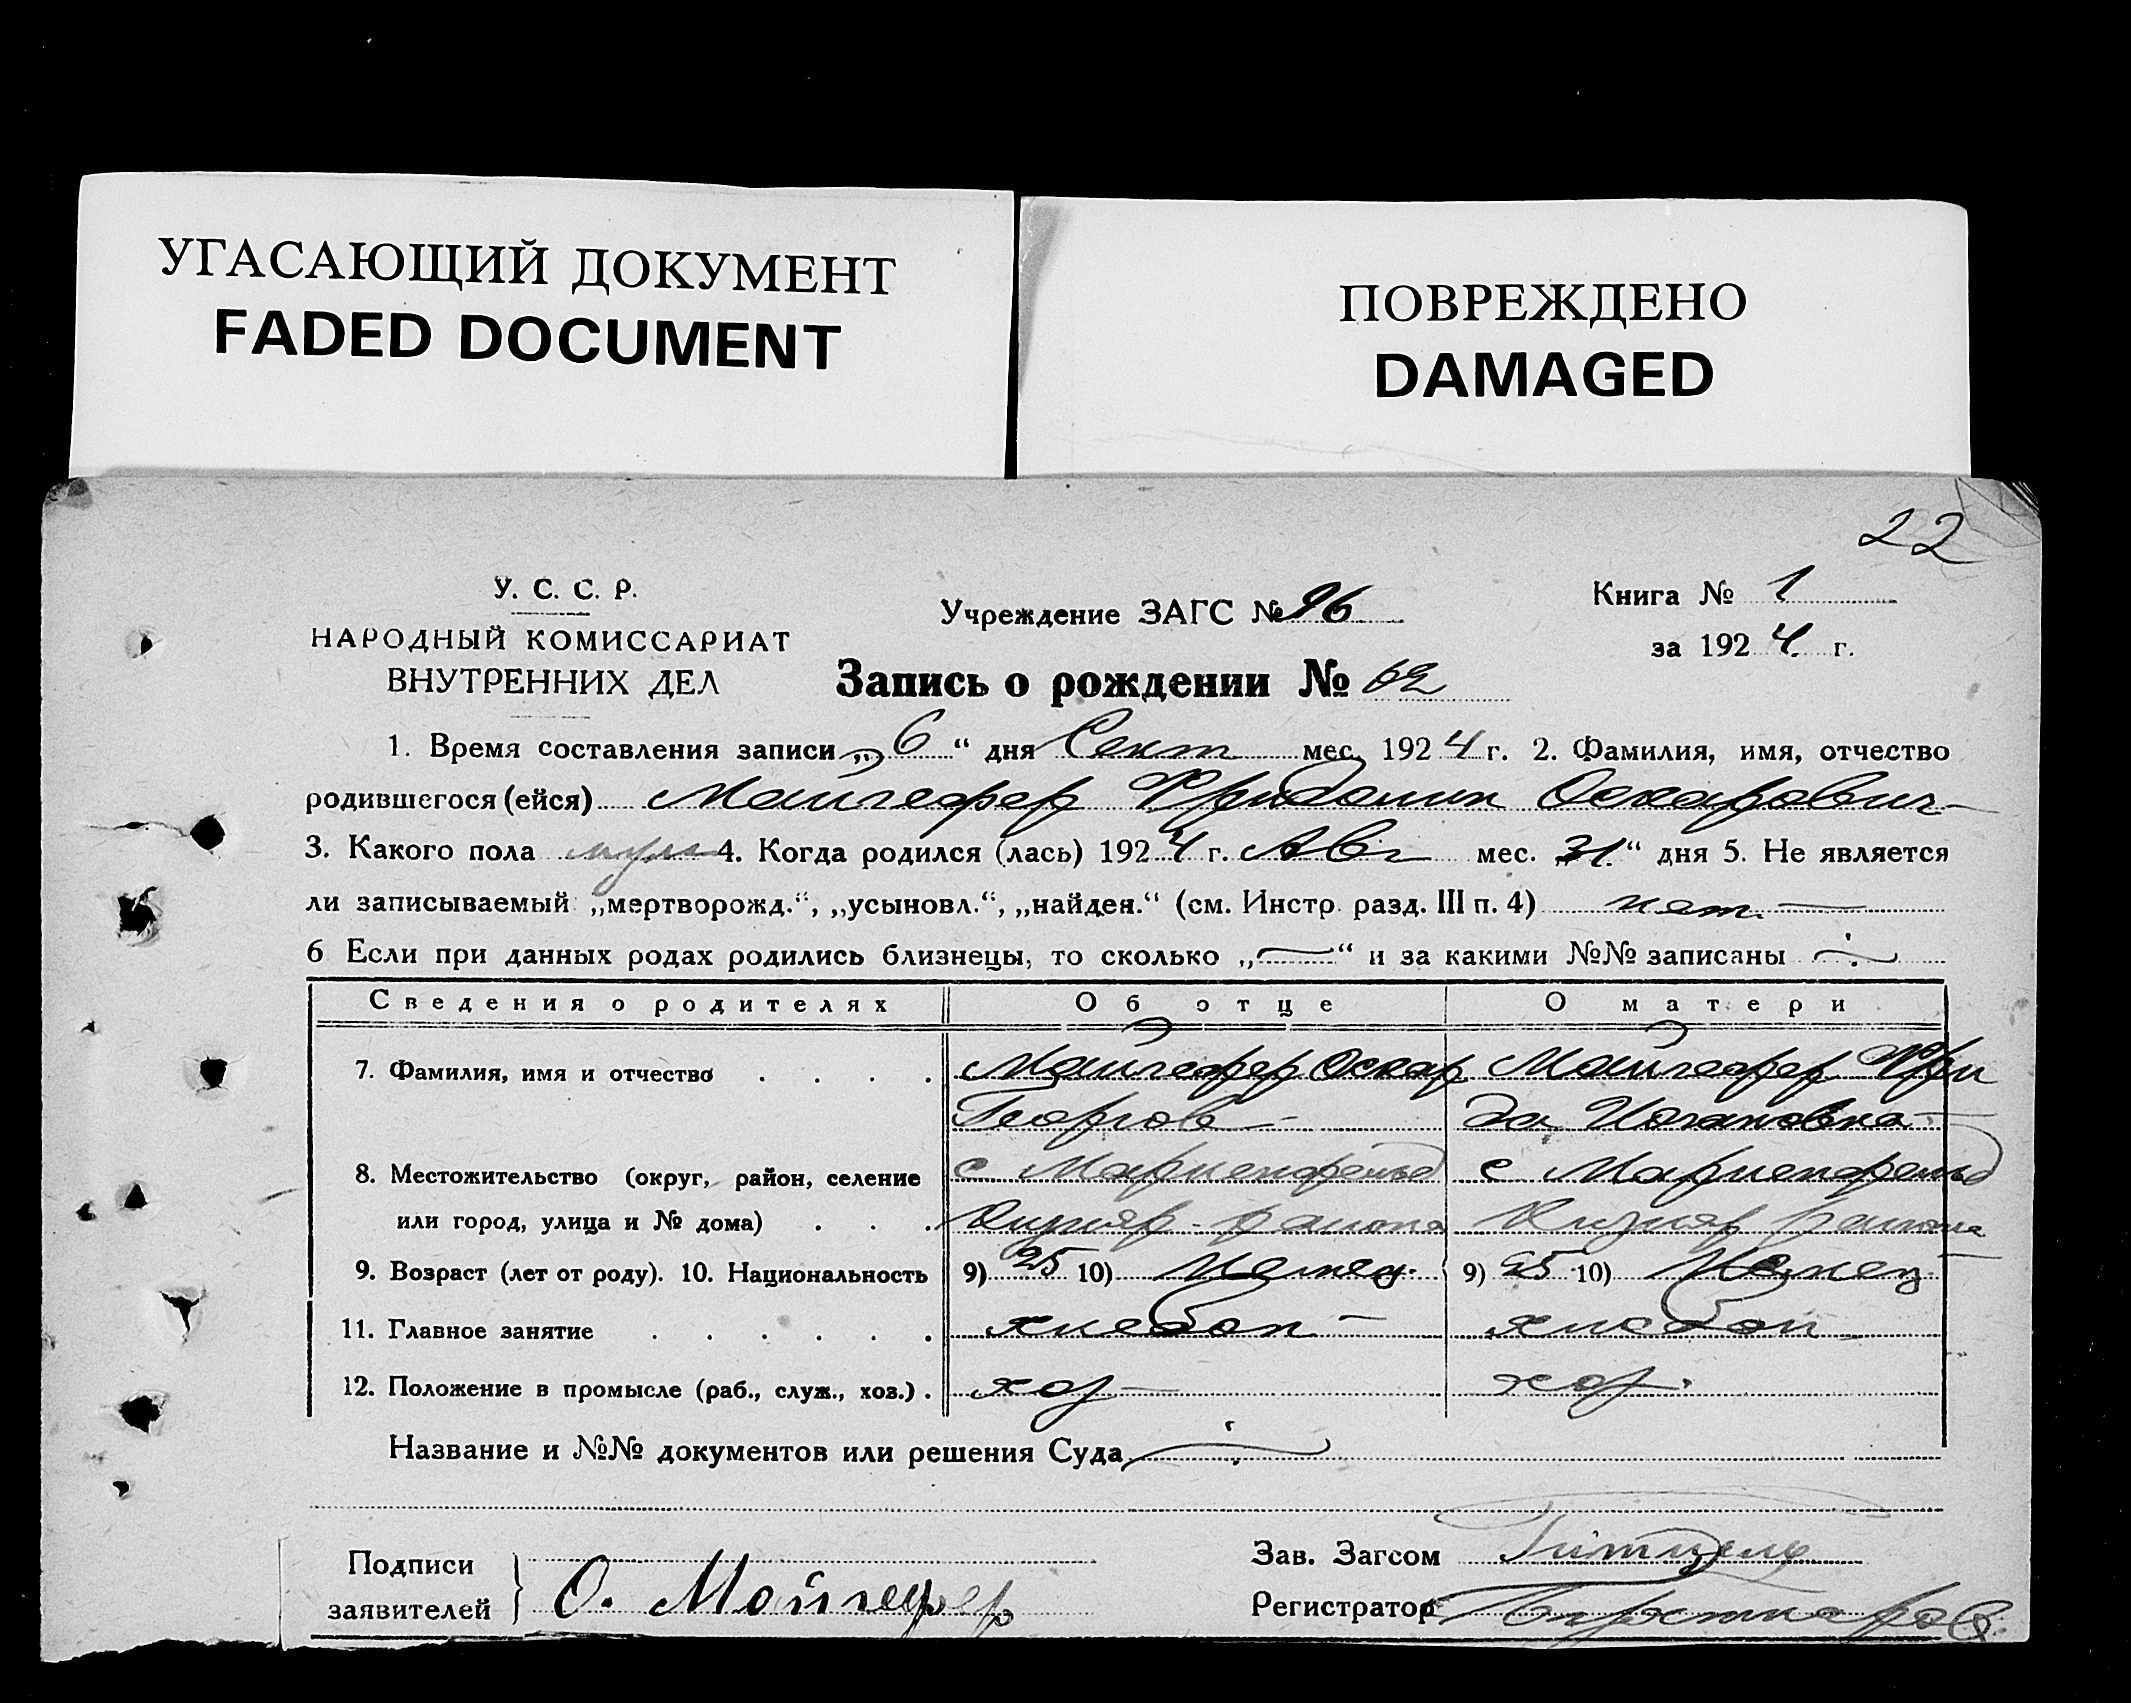 УГАСАЮЩИЙ ДОКУМЕНТ
FADED DOCUMENT
ПОВРЕЖДЕНО
DAMAGED
22
У. С. С. Р.
НАРОДНЫЙ КОМИССАРИАТ
ВНУТРЕННИХ ДЕЛ
Учреждение ЗАГС № 96
Книга № 1
за 1924 г.
Запись о рождении № 62
1. Время составления записи „6“ дня Сент мес. 1924 г. 2. Фамилия, имя, отчество
родившегося (ейся) Майгефер Фридолин Оскарович
3. Какого пола муж 4. Когда родился (лась) 1924 г. Авг мес. „31“ дня 5. Не является
ли записываемый „мертворожд.“, „усыновл.“, „найден.“ (см. Инстр. разд. III п. 4) нет. —
6 Если при данных родах родились близнецы, то сколько „—“ и за какими №№ записаны ÷
Сведения о родителях Об отце О матери
7. Фамилия, имя и отчество . . . . Майгефер Оскар Майгефер Фри
Георгов- да Иогановна
8. Местожительство (округ, район, селение с Мариенфельд с Мариенфельд
или город, улица и № дома) . . . района района
9. Возраст (лет от роду). 10. Национальность 9) 25 10) Немец. 9) 25 10) Немец
11. Главное занятие . . . . . . хлебоп — хлебоп
12. Положение в промысле (раб., служ., хоз.) . хоз — хоз.
Название и №№ документов или решения Суда ÷
Подписи
заявителей } О. Майгефер
Зав. Загсом
Регистратор